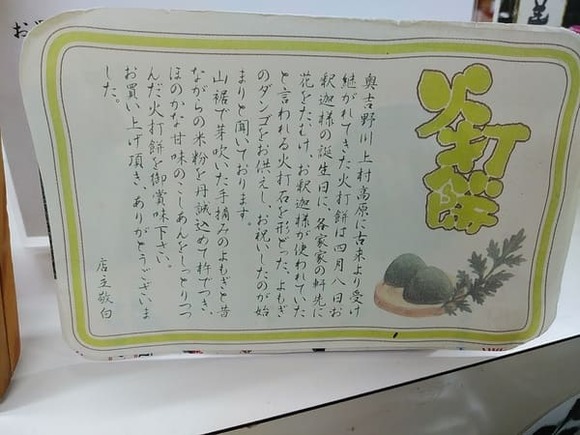 火打餅
奥吉野川上村高原に古来より受け
継がれてきた火打餅は四月八日お
釈迦様の誕生日に、各家家の軒先に
花をたむけ、お釈迦様が使われていた
と言われる火打石を形どった、よもぎ
のダンゴをお供えし、お祝いしたのが始
まりと聞いております。
山裾で芽吹いた手摘みのよもぎと昔
ながらの米粉を丹誠込めて杵でつき、
ほのかな甘味のこしあんをしっとりつつ
んだ火打餅を御賞味下さい。
お買い上げ頂き、ありがとうございま
した。
店主敬白